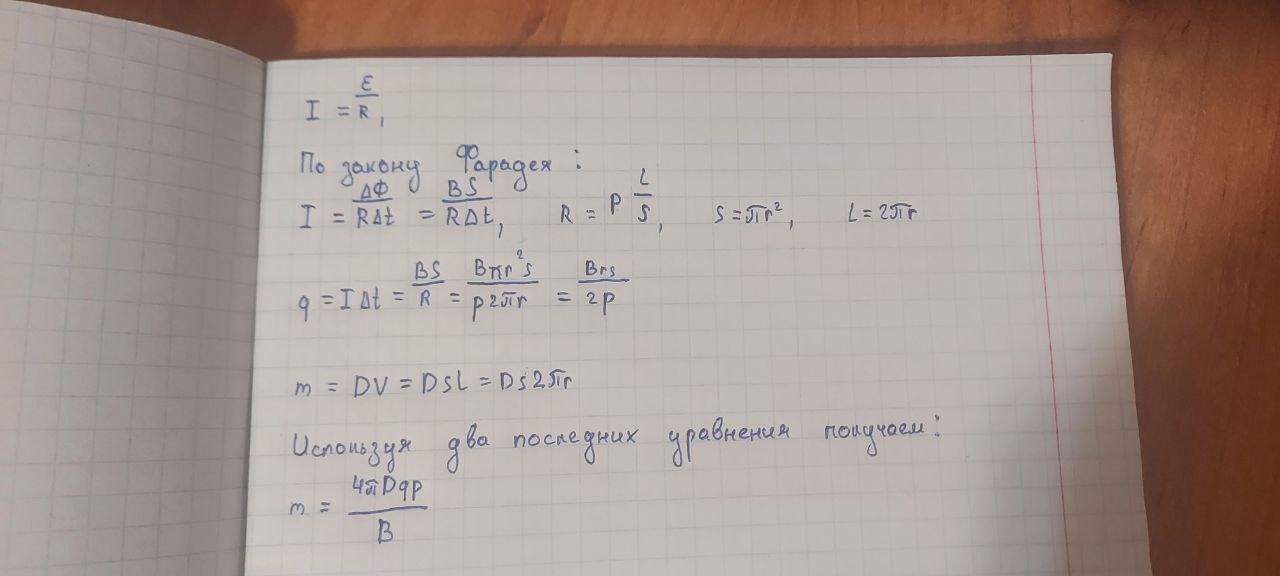 I = ε/R,
По закону Фарадея:
I = ΔΦ/RΔt = BS/RΔt, R = ρ L/s, S = πr², L = 2πr
q = IΔt = BS/R = Bπr²s/ρ2πr = Brs/2ρ
m = DV = DsL = Ds2πr
Используя два последних уравнения получаем:
m = 4πDqρ/B